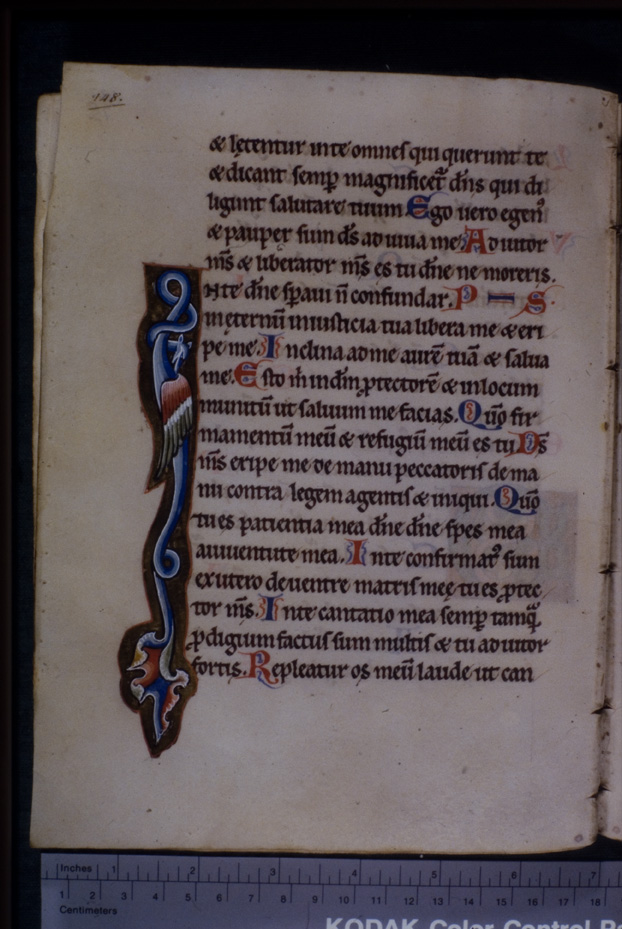 148.
& lętentur in te omnes qui querunt te
& dicant semp̄ magnificet᷑ dn̄s qui di
ligunt salutare tuum Ego uero egen᷒
& pauper sum ds̄ adiuua me. Adiutor
ms̄ & liberator ms̄ es tu dn̄e ne moreris.
IN te dn̄e sp̄aui n̄ confundar. P S
in eternū in iusticia tua libera me & eri
pe me. Inclina ad me aurē tuā & salua
me. Esto m̄ in dm̄ ꝓtectorē & in locum
munitū ut saluum me facias. Qūo fir
mamentū meū & refugiū meū es tu Ds̄
ms̄ eripe me de manu peccatoris de ma
nu contra legem agentis & iniqui. Qūo
tu es patientia mea dn̄e dn̄e spes mea
a iuuentute mea. In te confirmat᷒ sum
ex utero de uentre matris meę tu es ꝓtec
tor ms̄. In te cantatio mea semp̄ tamq̄
ꝓdigium factus sum multis & tu adiutor
fortis. Repleatur os meū laude ut can
Inches 1 2 3 4 5 6 7
1 2 3 4 5 6 7 8 9 10 11 12 13 14 15 16 17 18
Centimeters
KODAK Color Control